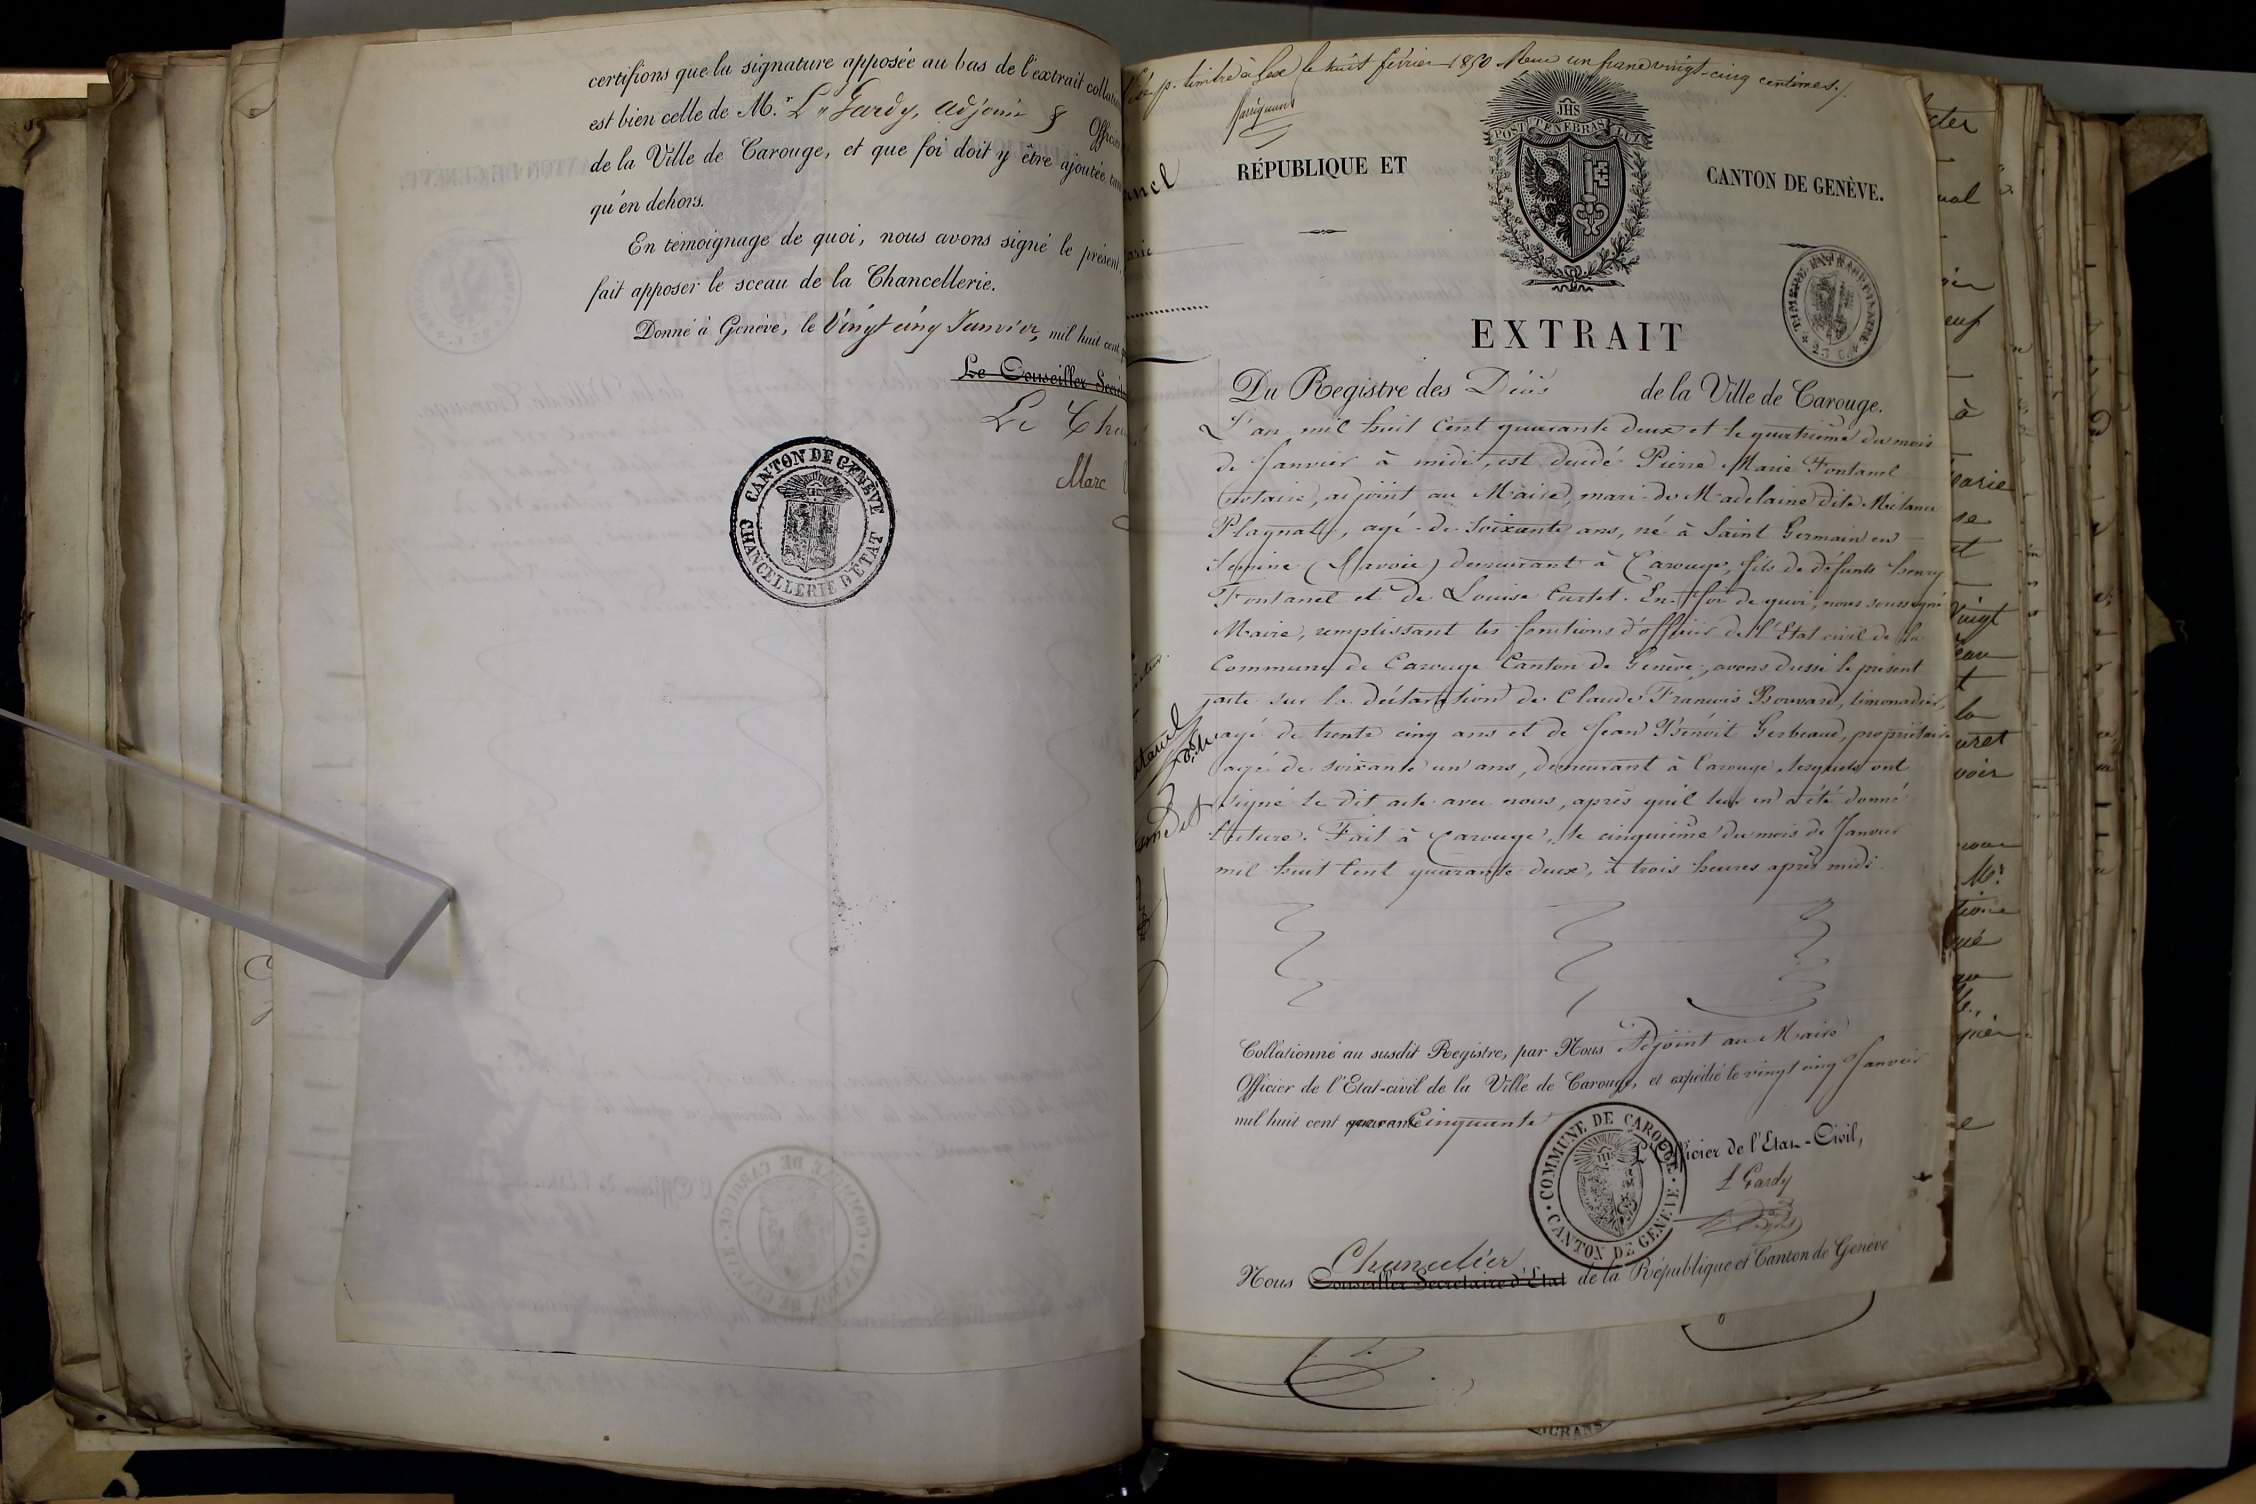 certifions que la signature apposée au bas de l'extrait
est bien celle de M.r L.s Gardy, adjoint
de la Ville de Carouge, et que foi doit y être ajoutée
qu'en dehors.
En témoignage de quoi, nous avons signé le présent,
fait apposer le sceau de la Chancellerie.
Donné à Genève, le Vingt cinq Janvier, mil huit cent
Le Conseiller
Le
Marc
CANTON DE GENÈVE
CHANCELLERIE D'ÉTAT
timbré à Gex le huit février 1850 Reçu un franc vingt-cinq centimes.
JHS
POST TENEBRAS LUX
RÉPUBLIQUE ET CANTON DE GENÈVE.
TIMBRE EXTRAORDINAIRE
EXTRAIT
Du Registre des Décès de la Ville de Carouge.
L'an mil huit cent quarante deux et le quatrième du mois
de Janvier à midi, est décédé Pierre Marie Fontanel
notaire, adjoint au Maire, mari de Madelaine dite Mélanie
Plagnat, agé de soixante ans, né à Saint Germain en
Semine (Savoie) demeurant à Carouge, fils de défunts henry
Fontanel et de Louise Curtet. En foi de quoi, nous soussigné
Maire, remplissant les fonctions d'officier de l'Etat civil de la
Commune de Carouge Canton de Genève, avons dressé le présent
acte sur la déclaration de Claude François Bouvard, limonadier,
agé de trente cinq ans et de Jean Benoit Gerbeaud, propriétaire
agé de soixante un ans, demeurant à Carouge, lesquels ont
signé le dit acte avec nous, après qu'il leur en a été donné
lecture. Fait à Carouge, le cinquième du mois de Janvier
mil huit cent quarante deux, à trois heures après midi.
Collationné au susdit Registre, par Nous Adjoint au Maire
Officier de l'Etat-civil de la Ville de Carouge, et expédié le vingt cinq Janvier
mil huit cent quarante Cinquante
COMMUNE DE CAROUGE
CANTON DE GENÈVE
L'Officier de l'Etat-Civil,
L Gardy
Chancelier
Nous Conseiller Secrétaire d'Etat de la République et Canton de Genève